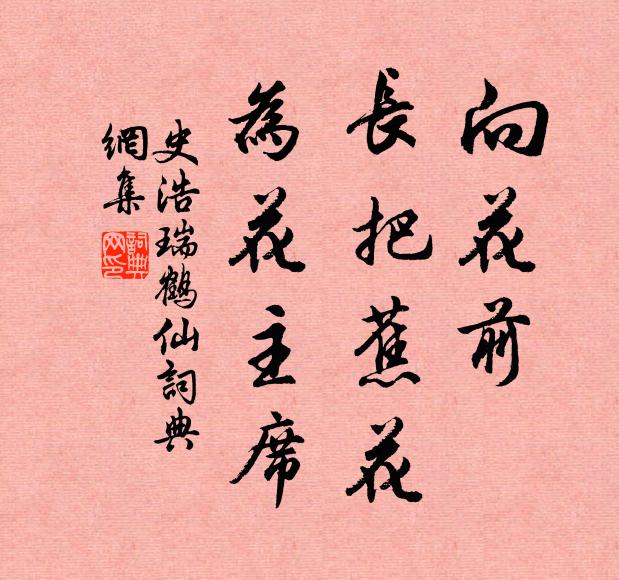 向花前
長把蕉花
為花主席
史浩瑞鶴仙詞典
網集
詞典
网印